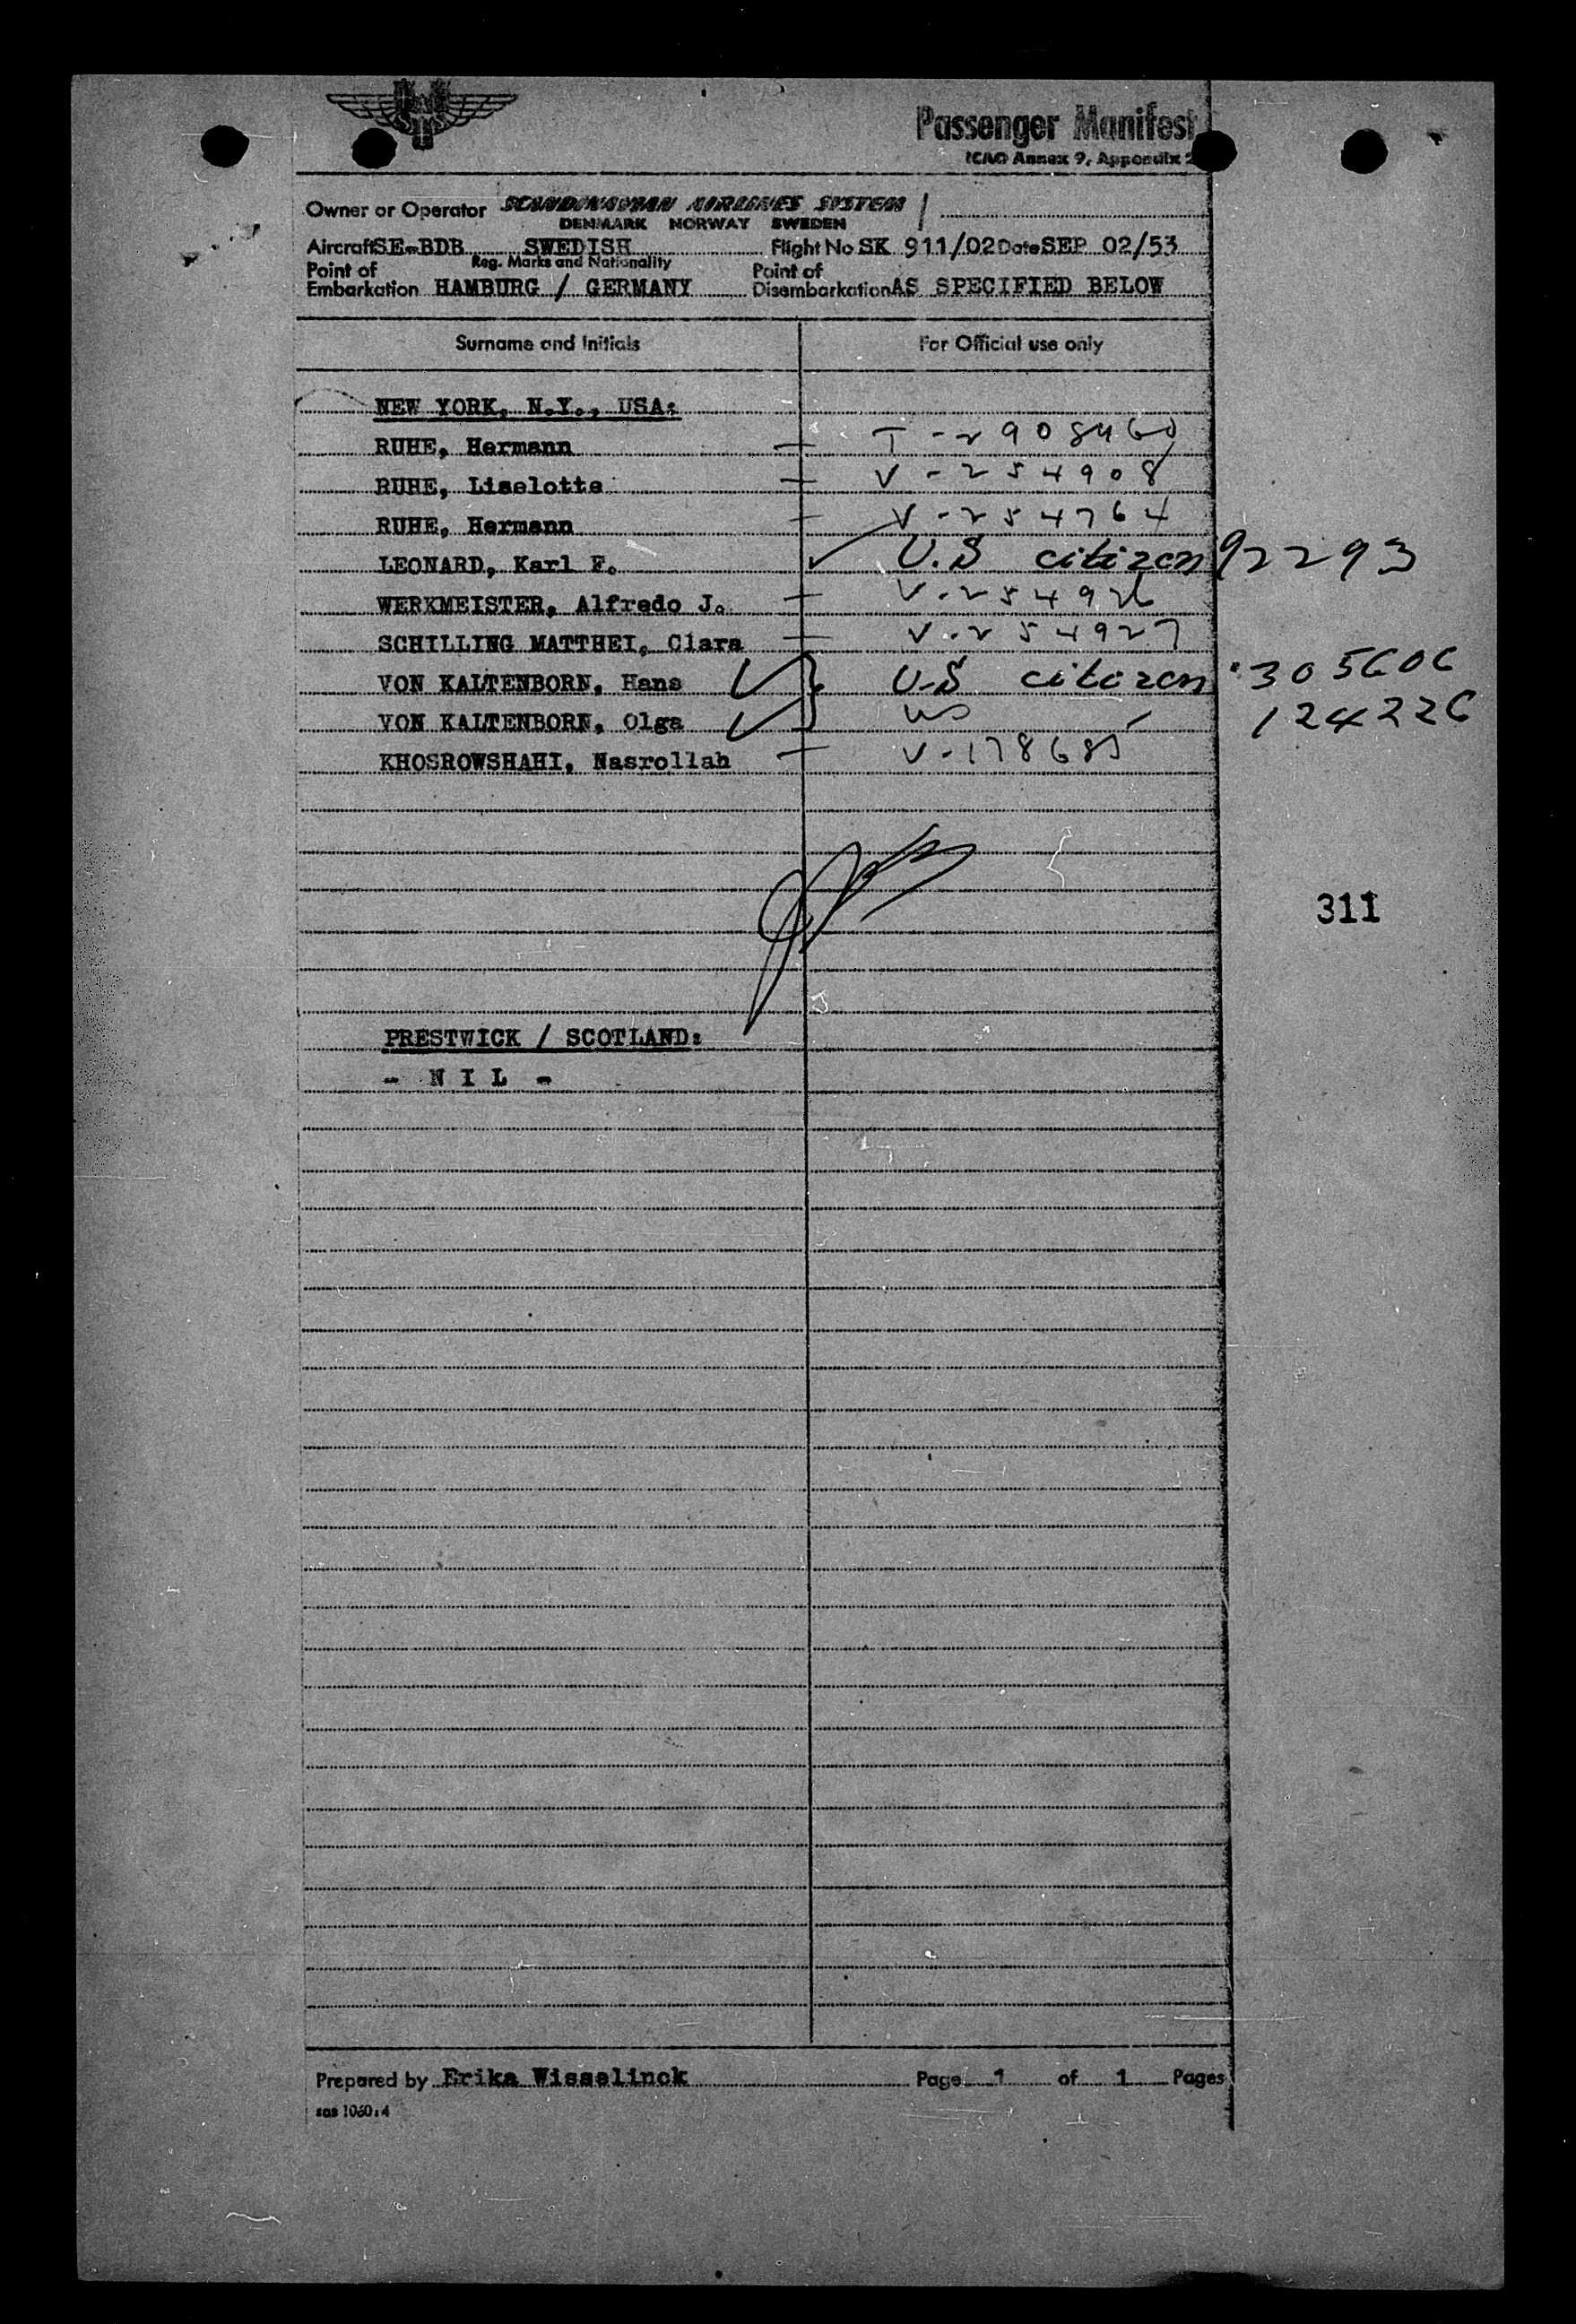 SAS
Passenger Manifest
ICAO Annex 9, Appendix 2
Owner or Operator SCANDINAVIAN AIRLINES SYSTEM
DENMARK NORWAY SWEDEN
Aircraft SE-BDB SWEDISH Flight No SK 911/02 Date SEP 02/53
Reg. Marks and Nationality
Point of Embarkation HAMBURG / GERMANY Point of Disembarkation AS SPECIFIED BELOW
Surname and Initials For Official use only
NEW YORK, N.Y., USA:
RUHE, Hermann T-2908460
RUHE, Liselotte V-254908
RUHE, Hermann V-254764
LEONARD, Karl F. U.S citizen 92293
WERKMEISTER, Alfredo J. V-254926
SCHILLING MATTHEI, Clara V-254927
VON KALTENBORN, Hans U-S citizen 305606
VON KALTENBORN, Olga US 124226
KHOSROWSHAHI, Nasrollah V-178685
311
PRESTWICK / SCOTLAND:
- N I L -
Prepared by Erika Wisselinck Page 1 of 1 Pages
sas 1060:4